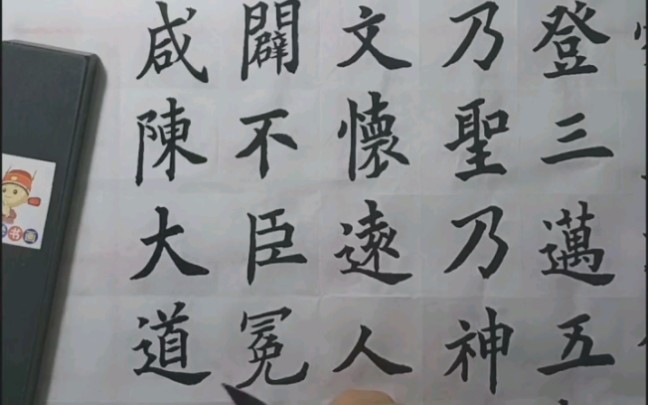 登三邁五
乃聖乃神
文懷遠人
闢不臣冕
咸陳大道
书画